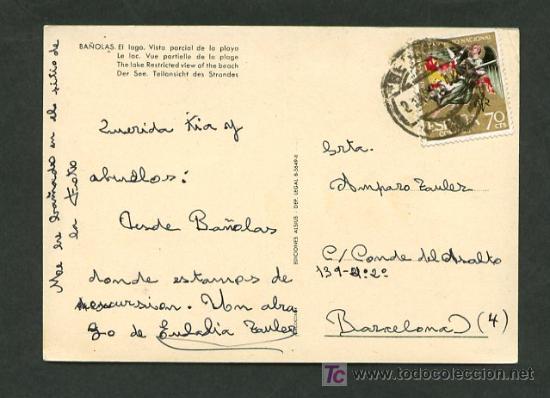 BAÑOLAS. El lago. Vista parcial de la playa
Le lac. Vue partielle de la plage
The lake Restricted view of the beach
Der See. Teilansicht des Strandes
Querida tia y
abuelos:
Desde Bañolas
donde estamos de
excursion. Un abra
zo de Eudalia Tauler
Me he bañado en el sitio de
la foto
EDICIONES ALSIUS - DEP. LEGAL B
NACIONAL
70
CTS
Srta.
Amparo Tauler
C/ Conde del Asalto
139-4º-2º
Barcelona (4)
TC www.todocoleccion.net